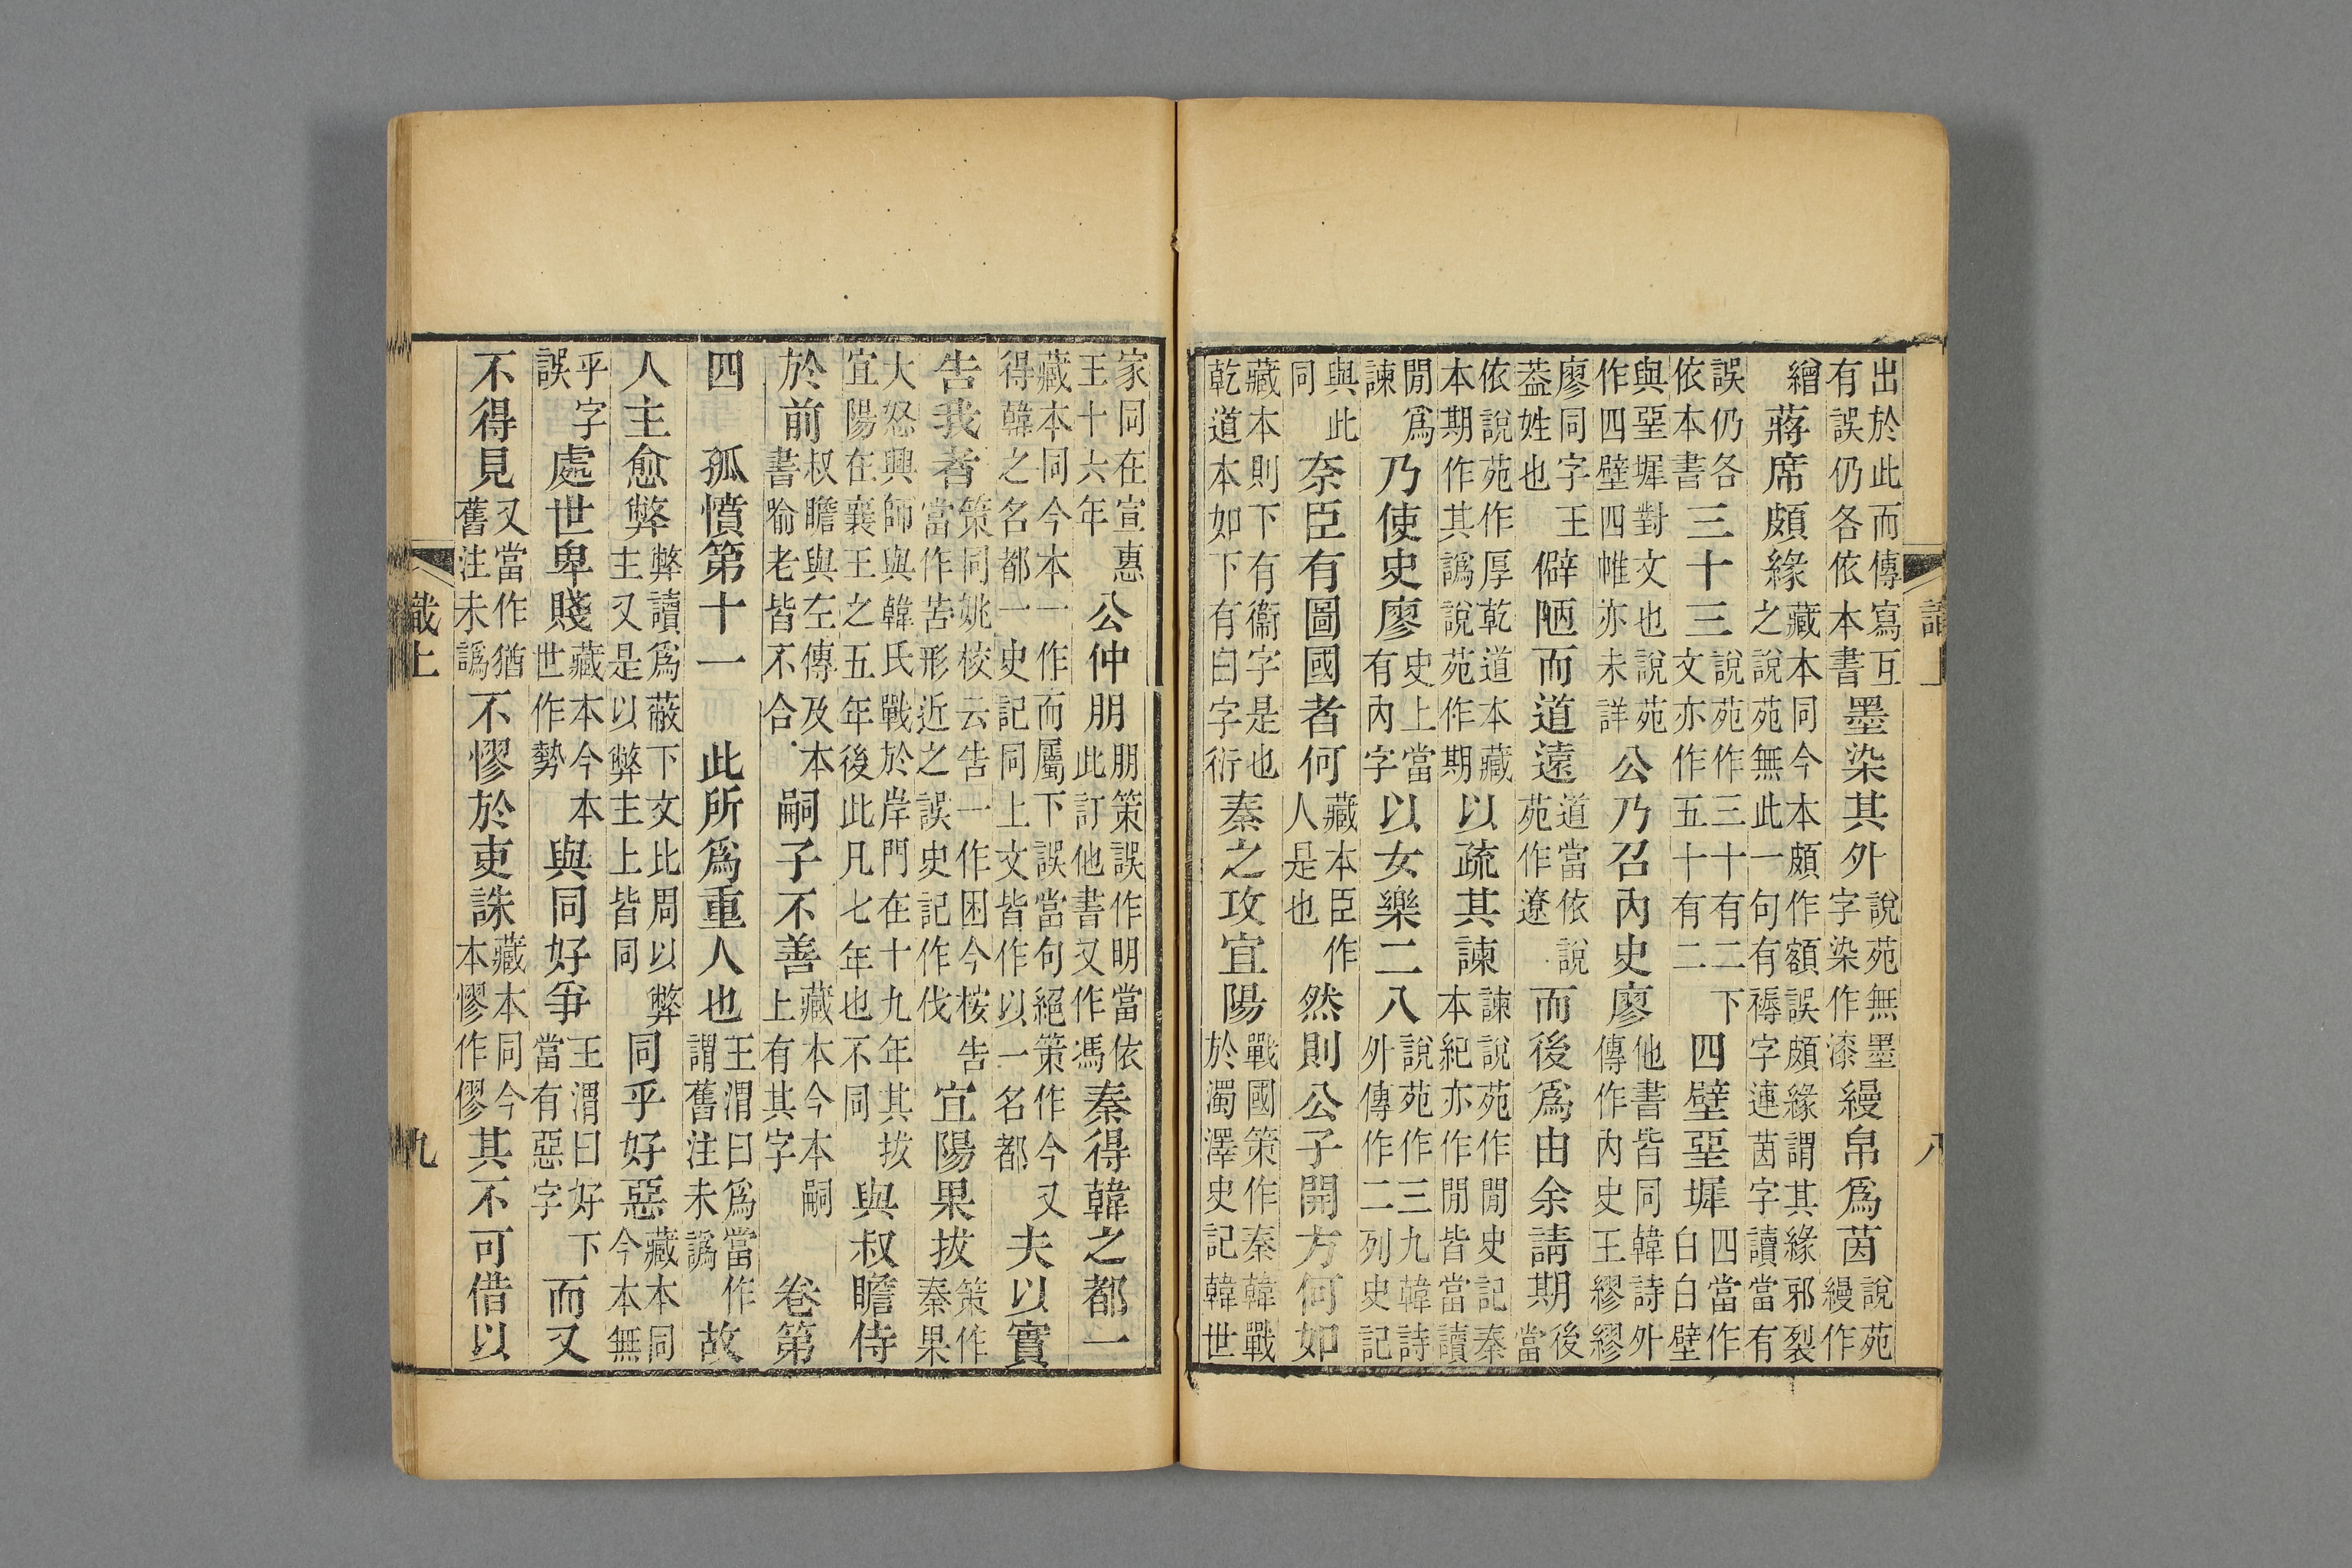 出於此而傳寫互有誤仍各依本書墨染其外說苑無墨字染作漆縵帛爲茵說苑縵作
繒蔣席頗緣藏本同今本頗作額誤頗緣謂其緣邪裂之說苑無此一句有褥字連茵字讀當有
誤仍各依本書三十三說苑作三十有二下文亦作五十有二四壁堊墀四當作白白壁
與堊墀對文也說苑作四壁四帷亦未詳公乃召內史廖他書皆同韓詩外傳作內史王繆繆
廖同字王葢姓也僻陋而道遠道當依說苑作遼而後爲由余請期後當
依說苑作厚乾道本藏本期作其譌說苑作期以疏其諫諫說苑作閒史記秦本紀亦作閒皆當讀
閒爲諫乃使史廖史上當有內字以女樂二八說苑作三九韓詩外傳作二列史記
與此同奈臣有圖國者何藏本臣作人是也然則公子開方何如
藏本則下有衞字是也乾道本如下有曰字衍秦之攻宜陽戰國策作秦韓戰於濁澤史記韓世
家同在宣惠王十六年公仲朋朋策誤作明當依此訂他書又作馮秦得韓之都一
藏本同今本一作而屬下誤當句絕策作今又得韓之名都一史記同上文皆作以一名都夫以實
告我者策同姚校云告一作困今桉告當作苦形近之誤史記作伐宜陽果拔策作秦果
大怒興師與韓氏戰於岸門在十九年其拔宜陽在襄王之五年後此凡七年也不同與叔瞻侍
於前叔瞻與左傳及本書喻老皆不合嗣子不善藏本今本嗣上有其字卷第
四　孤憤第十一　此所爲重人也王渭曰爲當作謂舊注未譌故
人主愈弊弊讀爲蔽下文此周以弊主又是以弊主上皆同同乎好惡藏本同今本無
乎字誤處世卑賤藏本今本世作勢與同好爭王渭曰好下當有惡字而又
不得見又當作猶舊注未譌不憀於吏誅藏本同今本憀作僇其不可借以
識上　九